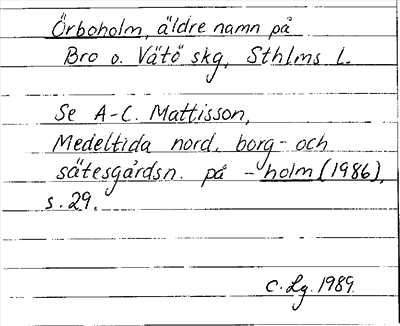 Örboholm, äldre namn på
Bro o. Vätö skg, Sthlms l.
Se A-C. Mattisson,
Medeltida nord. borg- och
sätesgårdsn. på -holm (1986),
s. 29.
C. Lg. 1989.